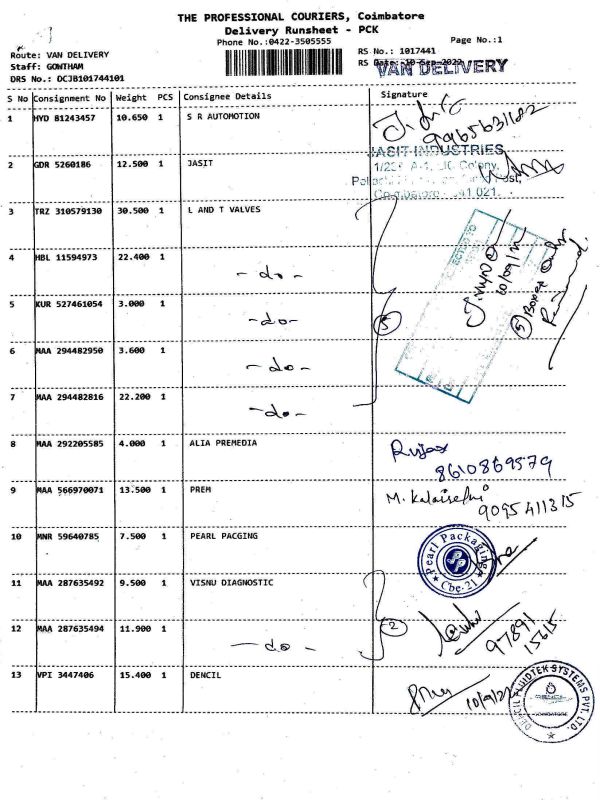 THE PROFESSIONAL COURIERS, Coimbatore
Delivery Runsheet - PCK
Phone No.:0422-3505555
Page No.:1
Route: VAN DELIVERY
Staff: GOWTHAM
DRS No.: DCJB101744101
RS No.: 1017441
RS Date: 10-Sep-2022
VAN DELIVERY
S No Consignment No Weight PCS Consignee Details Signature
1 HYD 81243457 10.650 1 S R AUTOMOTION
9965631182
2 GDR 5260186 12.500 1 JASIT
JASIT INDUSTRIES
Coimbatore - 641 021.
3 TRZ 310579130 30.500 1 L AND T VALVES
4 HBL 11594973 22.400 1 -do-
5 KUR 527461054 3.000 1 -do-
6 MAA 294482950 3.600 1 -do-
7 MAA 294482816 22.200 1 -do-
5
10/09/22
5 Boxes Only
Received
8 MAA 292205585 4.000 1 ALIA PREMEDIA
8610869579
9 MAA 566970071 13.500 1 PREM
M. Kalaiselvi
9095411315
10 MNR 59640785 7.500 1 PEARL PACGING
Pearl Packaging
PP
Cbe-21
11 MAA 287635492 9.500 1 VISNU DIAGNOSTIC
12 MAA 287635494 11.900 1 -do-
2
97891
15615
13 VPI 3447406 15.400 1 DENCIL
10/9/22
DENCIL FLUIDTEK SYSTEMS PVT. LTD.